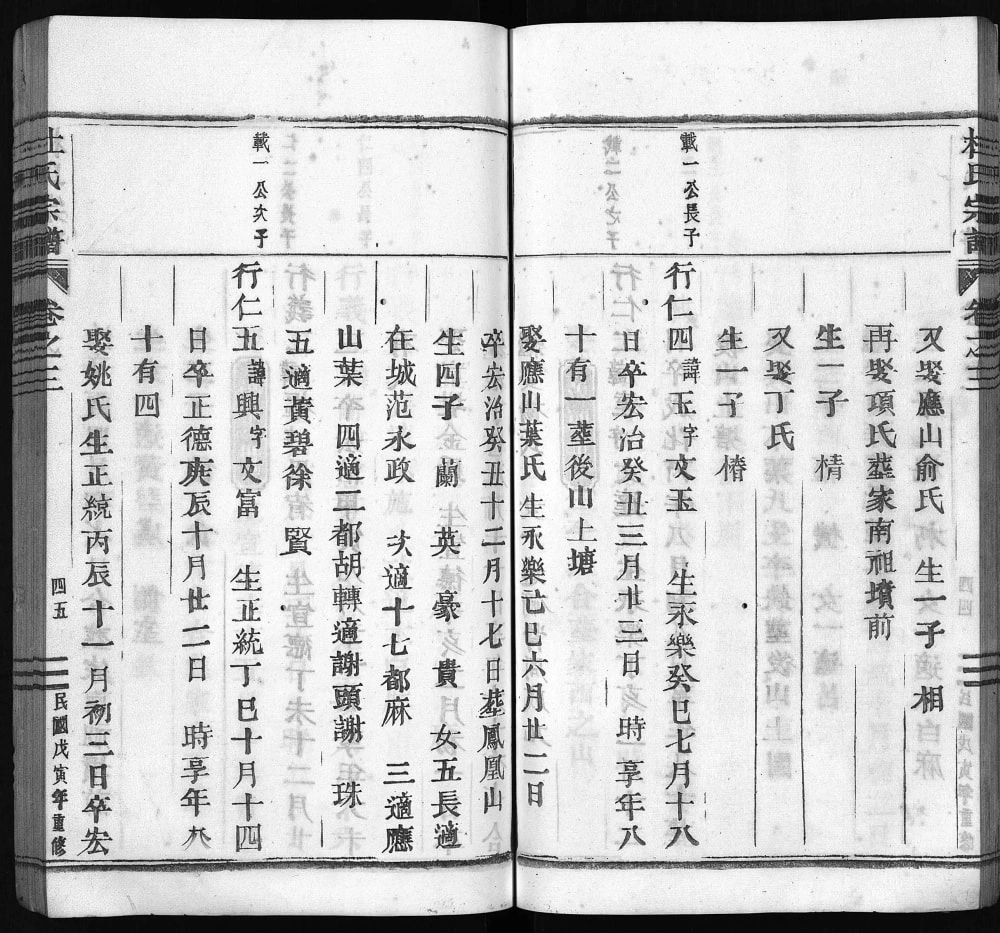 杜氏宗譜
卷之三
又娶應山俞氏　生一子　相
再娶項氏葬家南祖墳前
生一子　精
又娶丁氏
生一子　楕
載一公長子
行仁四諱玉字文玉　生永樂癸巳七月十八
日卒宏治癸丑三月廿三日　時享年八
十有一葬後山上塘
娶應山葉氏　生永樂己巳六月廿二日
卒宏治癸丑十二月十七日葬鳳凰山
生四子　蘭　英　豪　貴　女五長適
在城范永政　次適十七都麻　三適應
山葉　四適三都胡轉適謝頭謝　珠
五適黃碧徐　賢
載一公次子
行仁五諱興字文富　生正統丁巳十月十四
日卒正德庚辰十月廿二日　時享年八
十有四
娶姚氏生正統丙辰十一月初三日卒宏
杜氏宗譜
卷之三
四五
民國戊寅年重修